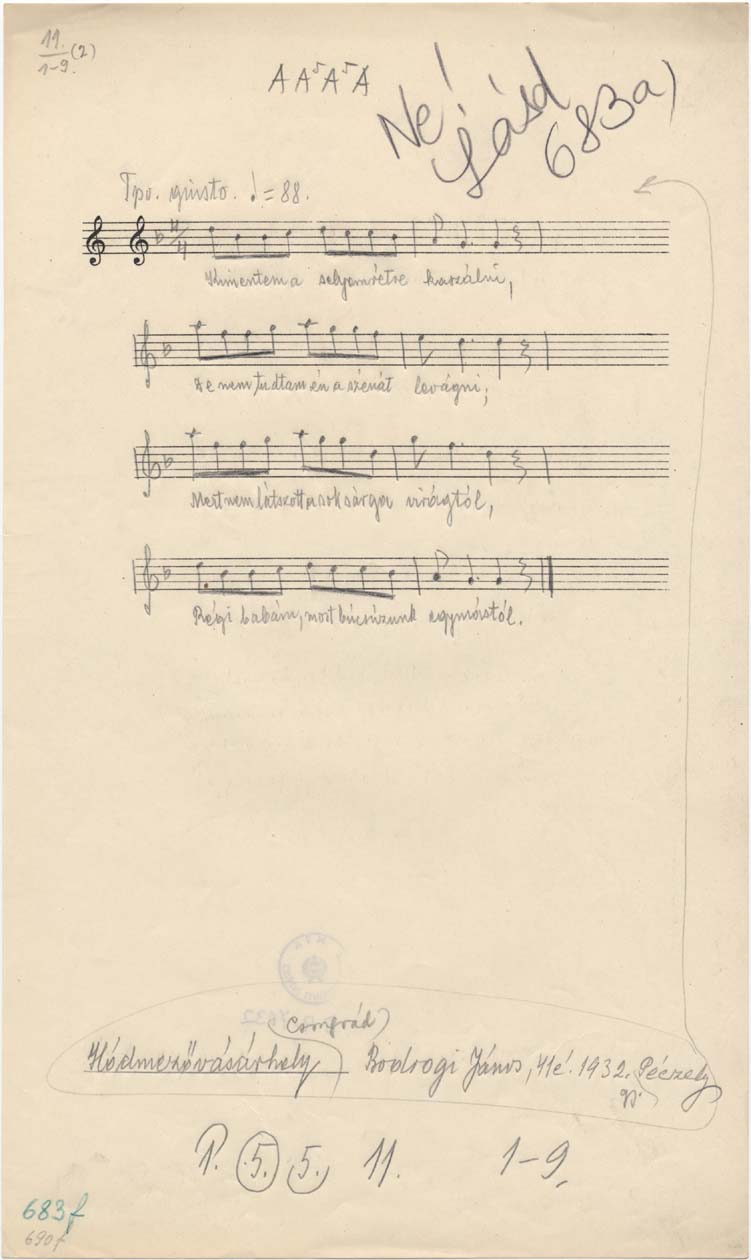 11.
1-9. (2)
A A⁵ A⁵ A
Ne! Lásd
683a)
Tpo. giusto. ♩=88.
4/4
Kimentem a selyemrétre kaszálni,
De nem tudtam én a szénát levágni;
Mert nem látszott a sok sárga virágtól,
Régi babám, most búcsúzunk egymástól.
Csongrád)
Hódmezővásárhely) Bodrogi János, 41é. 1932. Péczely
1. 5. 5. 11. 1-9.
683f
690f